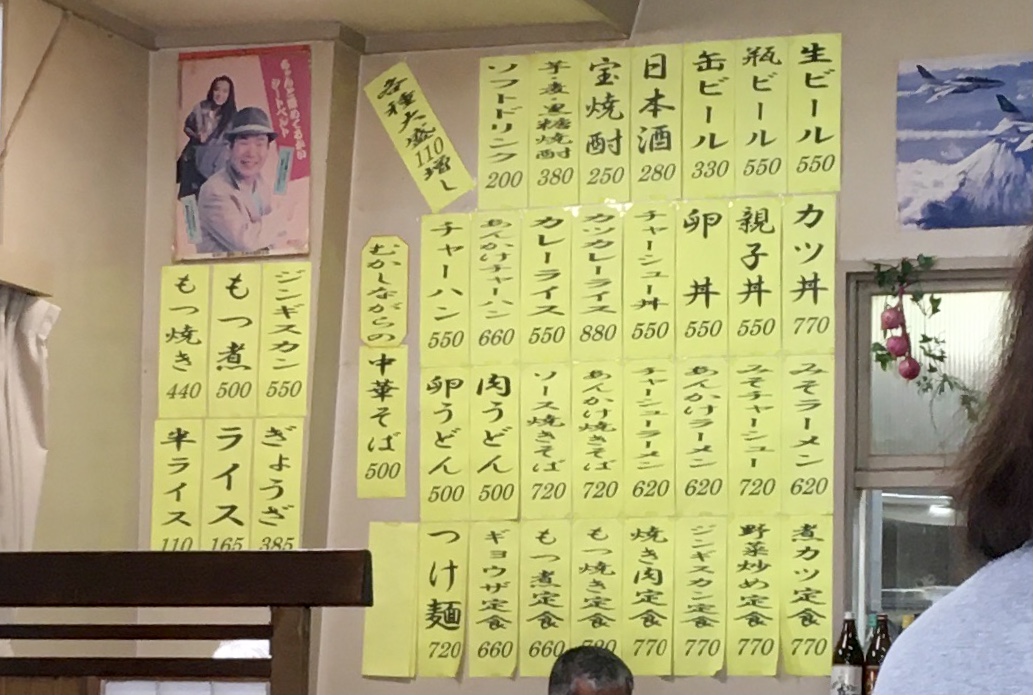 生ビール 550
瓶ビール 550
缶ビール 330
日本酒 280
宝焼酎 250
芋・麦・黒糖焼酎 380
ソフトドリンク 200
各種大盛110増し
カツ丼 770
親子丼 550
卵丼 550
チャーシュー丼 550
カツカレーライス 880
カレーライス 550
あんかけチャーハン 660
チャーハン 550
むかしながらの
中華そば 500
みそラーメン 620
みそチャーシュー 720
あんかけラーメン 620
チャーシューラーメン 620
あんかけ焼きそば 720
ソース焼きそば 720
肉うどん 500
卵うどん 500
煮カツ定食 770
野菜炒め定食 770
ジンギスカン定食 770
焼き肉定食 770
もつ焼き定食
もつ煮定食 660
ギョウザ定食 660
つけ麺 720
ジンギスカン 550
もつ煮 500
もつ焼き 440
ぎょうざ 385
ライス 165
半ライス 110
シートベルト